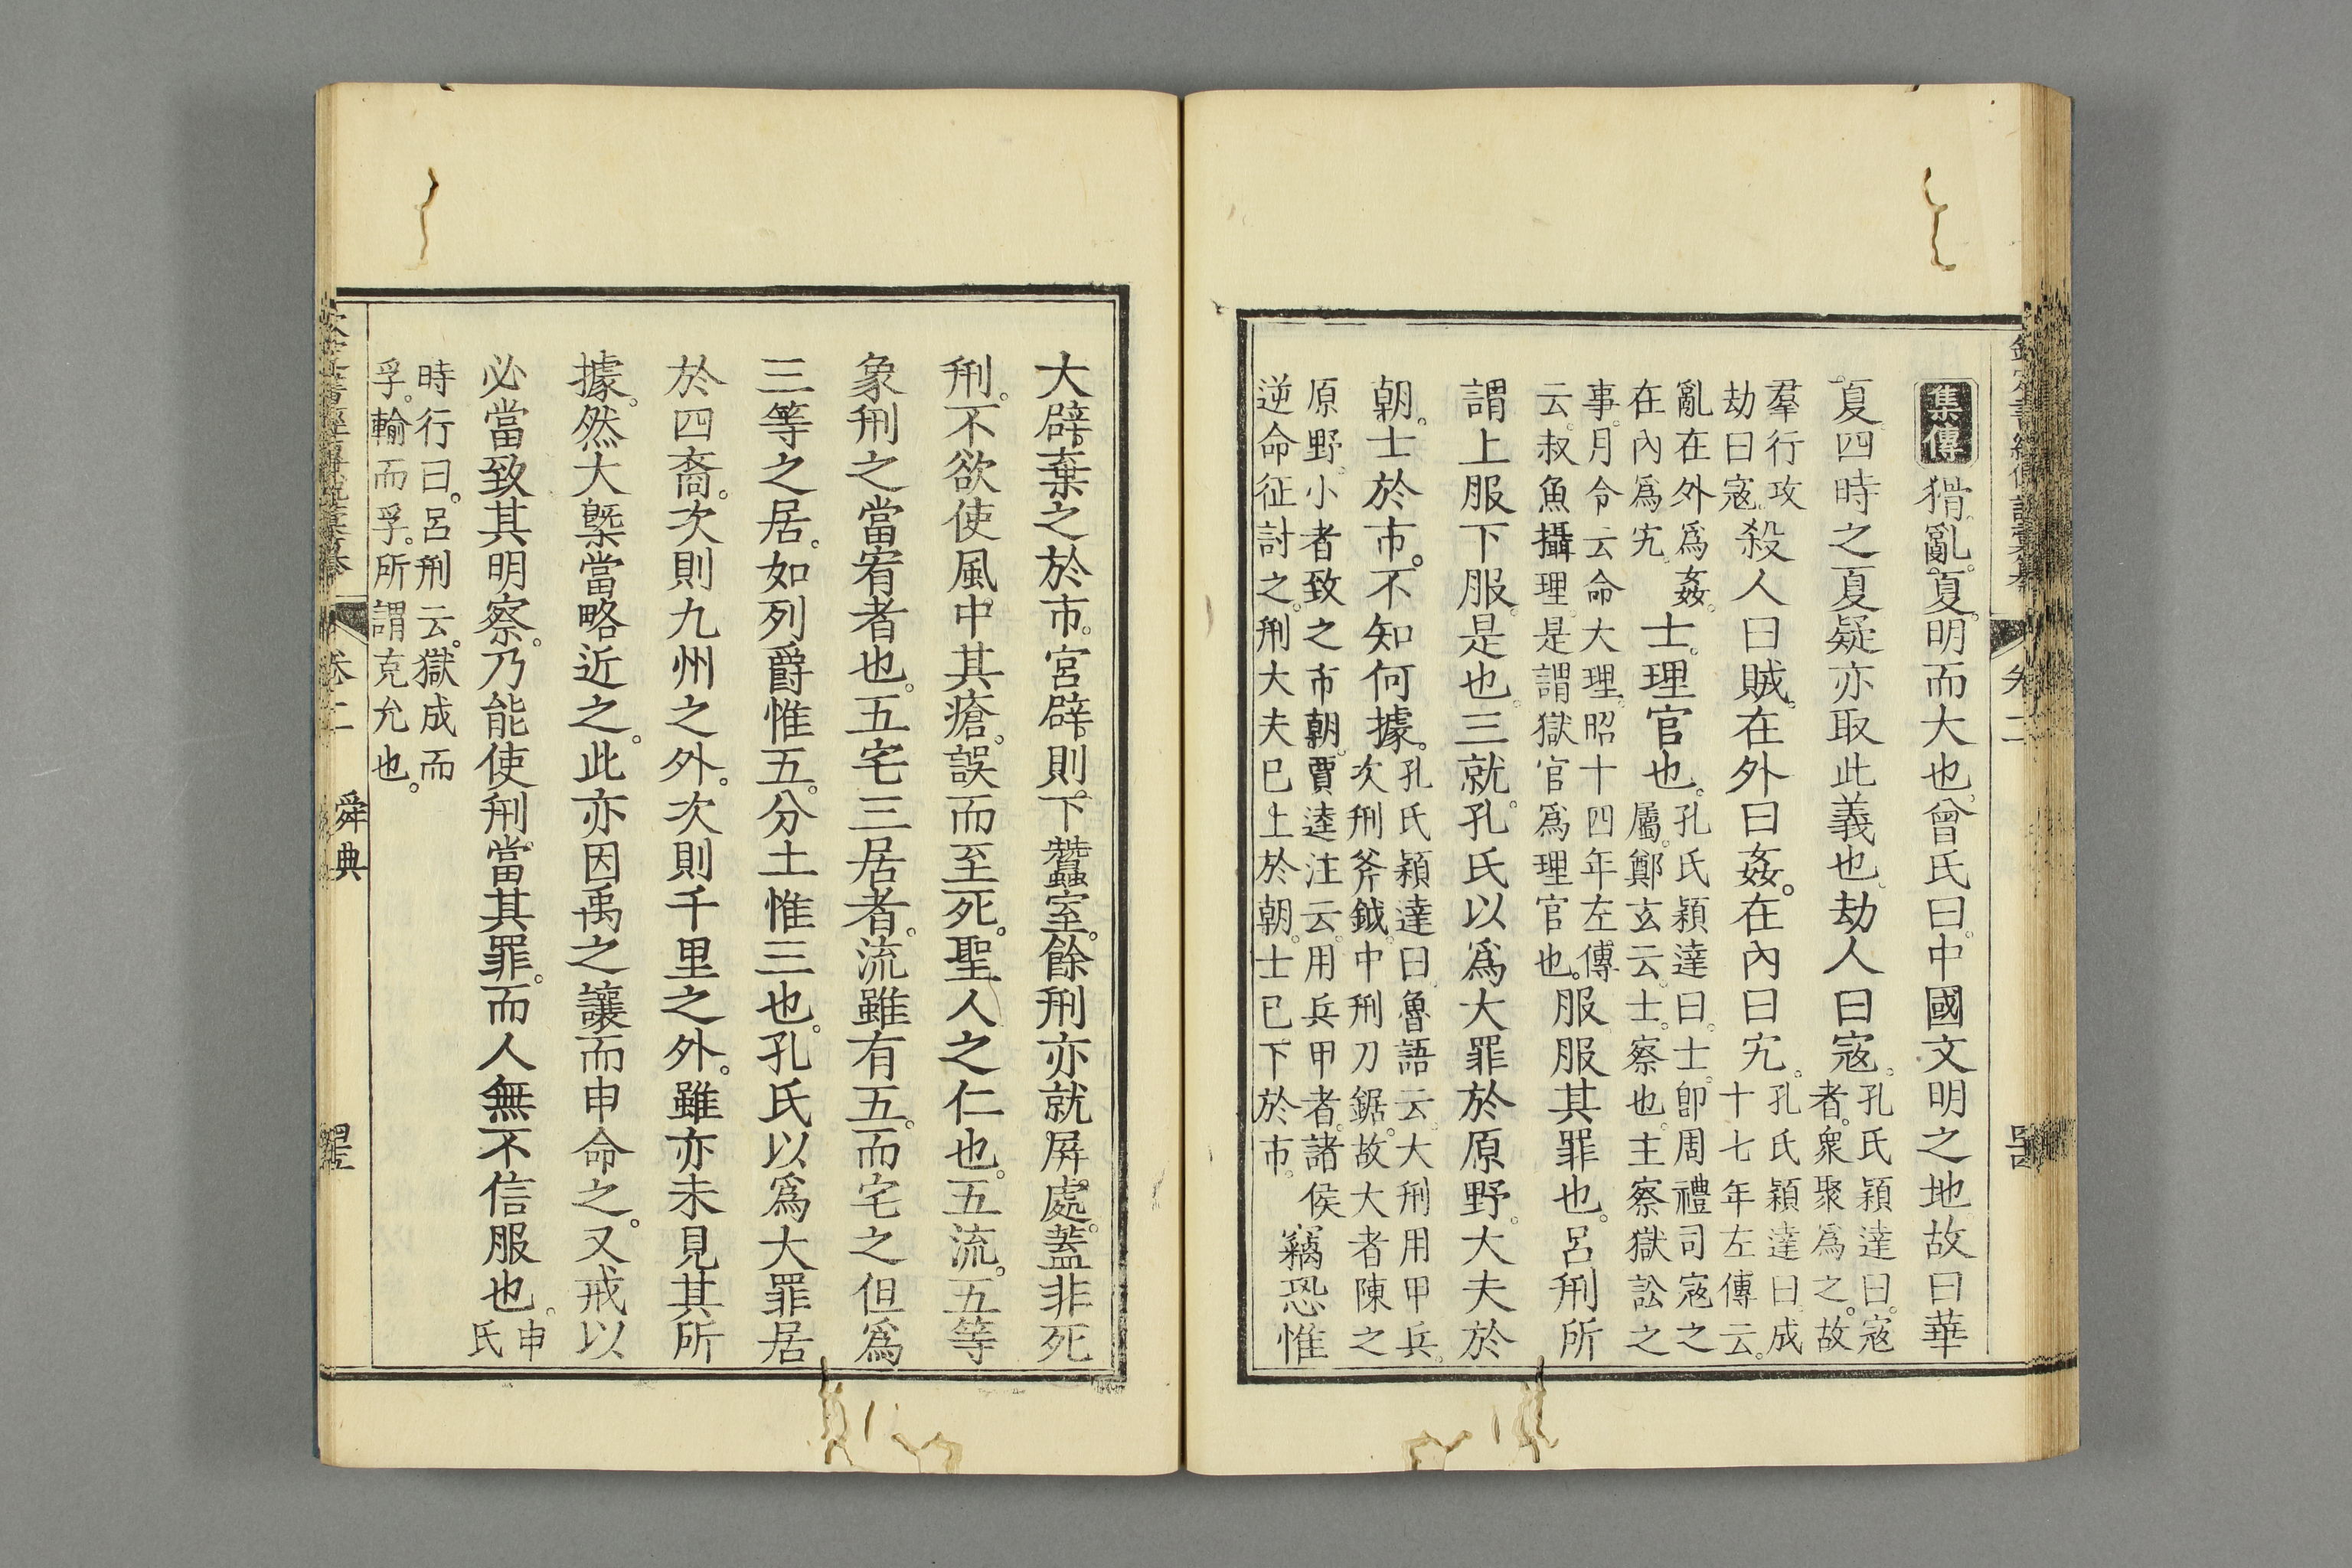 欽定書經傳說彙纂 卷二
集傳 猾。亂。夏。明而大也。曾氏曰。中國文明之地。故曰華
夏。四時之夏。疑亦取此義也。劫人曰寇。孔氏穎達曰。寇者。衆聚爲之。故
羣行攻劫曰寇。殺人曰賊。在外曰姦。在內曰宄。孔氏穎達曰。成十七年左傳云。
亂在外爲姦。在內爲宄。士。理官也。孔氏穎達曰。士。卽周禮司寇之屬。鄭玄云。士。察也。主察獄訟之
事。月令云。命大理。昭十四年左傳云。叔魚攝理。是謂獄官爲理官也。服服其罪也。呂刑所
謂上服下服。是也。三就。孔氏以爲大罪於原野。大夫於
朝。士於市。不知何據。孔氏穎達曰。魯語云。大刑用甲兵。次刑斧鉞。中刑刀鋸。故大者陳之
原野。小者致之市朝。賈逵注云。用兵甲者。諸侯逆命征討之刑。大夫已上於朝。士已下於市。竊恐惟
大辟。棄之於市。宮辟。則下蠶室。餘刑亦就屏處。蓋非死
刑。不欲使風中其瘡。誤而至死。聖人之仁也。五流。五等
象刑之當宥者也。五宅三居者。流雖有五。而宅之但爲
三等之居。如列爵惟五。分土惟三也。孔氏以爲大罪居
於四裔。次則九州之外。次則千里之外。雖亦未見其所
據。然大槩當略近之。此亦因禹之讓而申命之。又戒以
必當致其明察。乃能使刑當其罪。而人無不信服也。申氏
時行曰。呂刑云。獄成而孚。輸而孚。所謂克允也。
卷二 舜典